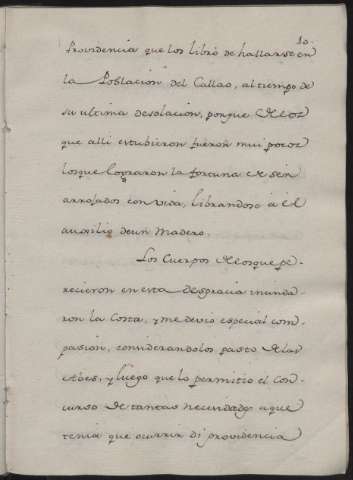 10.
Providencia que los libró de hallarse en
la Poblacion del Callao, al tiempo de
su ultima desolacion, porque de los
que alli estubieron fueron mui pocos
los que lograron la fortuna de ser
arrojados con vida, librandose à el
auxilio de un Madero.
Los Cuerpos de los que pe-
recieron en esta desgracia inunda-
ron la Costa, y me devió especial com-
pasion, considerandolos pasto de las
Aves, y luego que lo permitio el con-
curso de tantas necesidades a que
tenia que ocurrir dì providencia